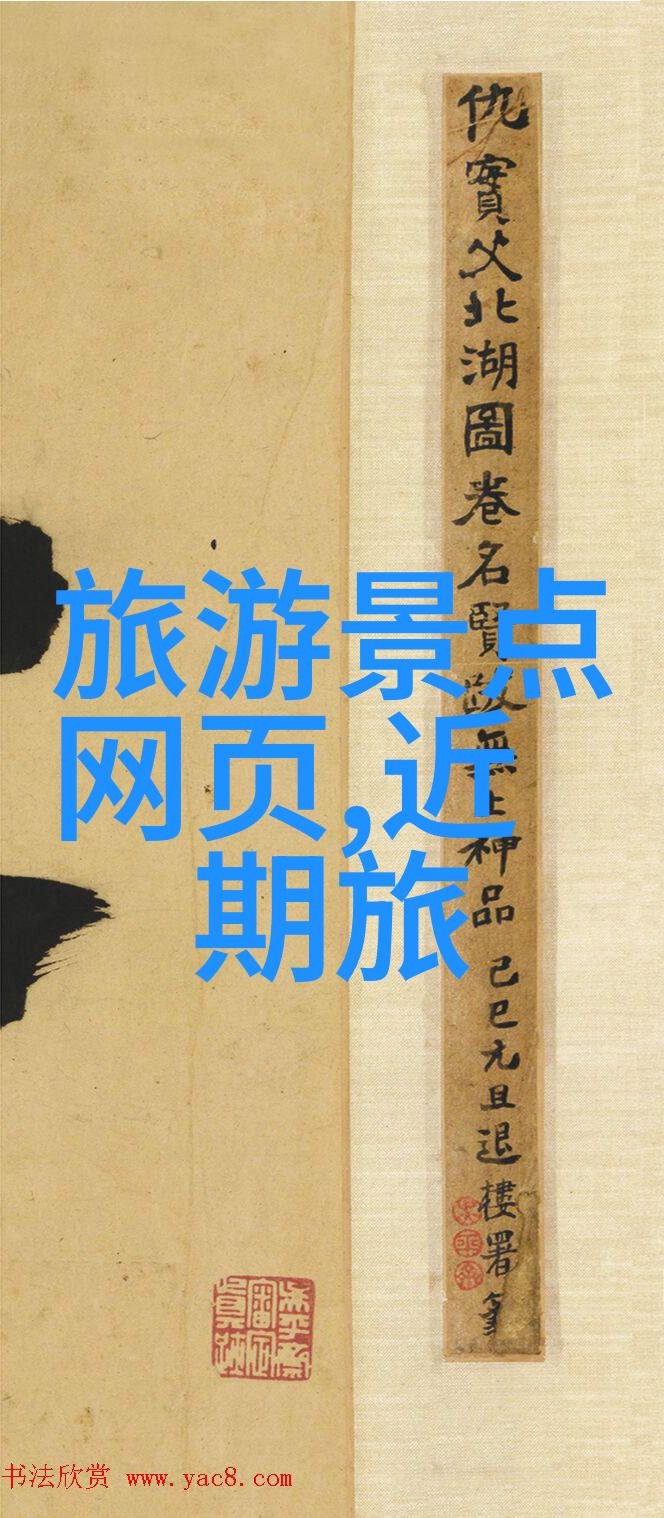 仇實父北湖圖卷名賢跋無上神品
己巳元旦退樓署耑
旅游景点
网页,近
期旅
书法欣赏 www.yac8.com